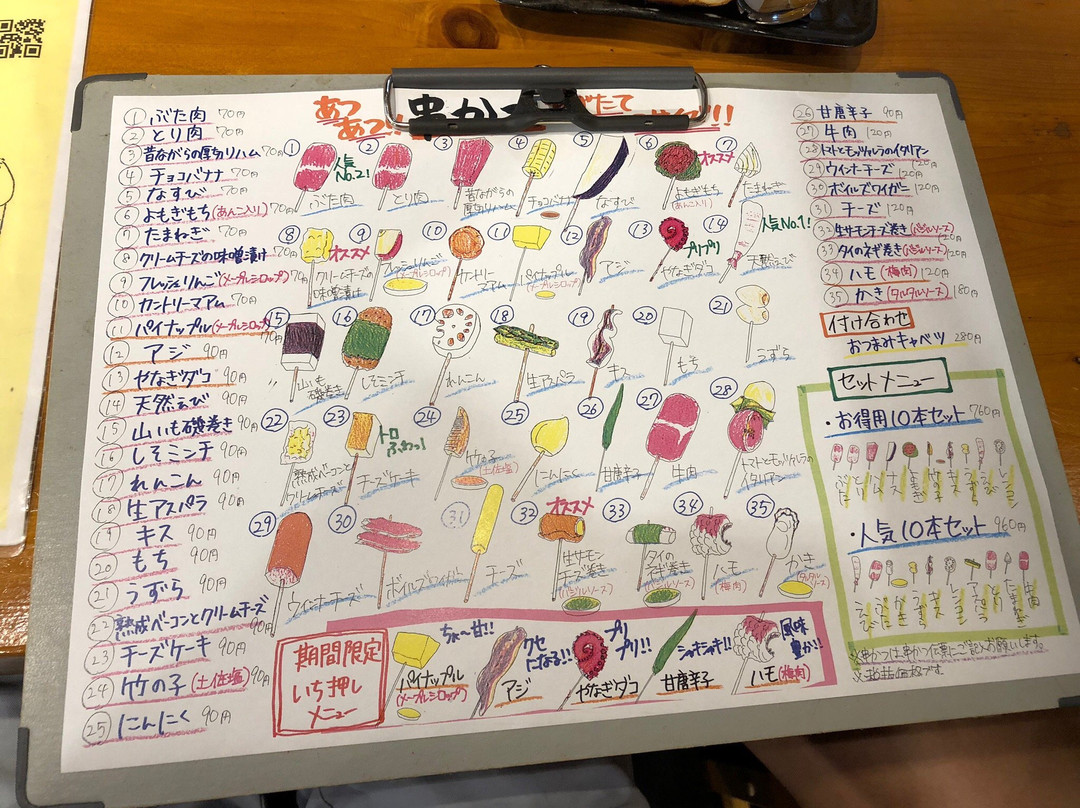 あつ
あつ!!
串か
たて
!!
① ぶた肉 70円
② とり肉 70円
③ 昔ながらの厚切りハム 70円
④ チョコバナナ 70円
⑤ なすび 70円
⑥ よもぎもち(あんこ入り) 70円
⑦ たまねぎ 70円
⑧ クリームチーズの味噌漬け 70円
⑨ フレッシュりんご(メープルシロップ) 70円
⑩ カントリーマアム 70円
⑪ パイナップル(メープルシロップ) 70円
⑫ アジ 90円
⑬ やなぎダコ 90円
⑭ 天然えび 90円
⑮ 山いも磯巻き 90円
⑯ しそミンチ 90円
⑰ れんこん 90円
⑱ 生アスパラ 90円
⑲ キス 90円
⑳ もち 90円
㉑ うずら 90円
㉒ 熟成ベーコンとクリームチーズ 90円
㉓ チーズケーキ 90円
㉔ 竹の子(土佐塩) 90円
㉕ にんにく 90円
① ぶた肉 人気No.2!
② とり肉
③ 昔ながらの厚切りハム
④ チョコバナナ
⑤ なすび
⑥ よもぎもち(あんこ入り) オススメ
⑦ たまねぎ
⑧ クリームチーズの味噌漬け オススメ
⑨ フレッシュりんご(メープルシロップ)
⑩ カントリーマアム
⑪ パイナップル(メープルシロップ)
⑫ アジ
⑬ やなぎダコ プリプリ
⑭ 天然えび 人気No.1!
⑮ 山いも磯巻き
⑯ しそミンチ
⑰ れんこん
⑱ 生アスパラ
⑲ キス
⑳ もち
㉑ うずら
㉒ 熟成ベーコンとクリームチーズ
㉓ チーズケーキ トロふわっ!
㉔ 竹の子(土佐塩)
㉕ にんにく
㉖ 甘唐辛子
㉗ 牛肉
㉘ トマトとモッツァレラのイタリアン
㉙ ウインナーチーズ
㉚ ボイルズワイガー
㉛ チーズ
㉜ 生サーモンチーズ巻き(バジルソース) オススメ
㉝ タイのネギ巻き(バジルソース)
㉞ ハモ(梅肉)
㉟ かき(タルタルソース)
期間限定
いち押し
メニュー
パイナップル(メープルシロップ) ちょ〜甘!!
アジ クセになる!!
やなぎダコ プリプリ!!
甘唐辛子 シャキシャキ!!
ハモ(梅肉) 風味豊か!!
㉖ 甘唐辛子 90円
㉗ 牛肉 120円
㉘ トマトとモッツァレラのイタリアン 120円
㉙ ウインナーチーズ 120円
㉚ ボイルズワイガー 120円
㉛ チーズ 120円
㉜ 生サーモンチーズ巻き(バジルソース) 120円
㉝ タイのネギ巻き(バジルソース) 120円
㉞ ハモ(梅肉) 120円
㉟ かき(タルタルソース) 180円
付け合わせ
おつまみキャベツ 280円
セットメニュー
・お得用10本セット 760円
ぶた
とり
ハム
なす
よもぎ
・人気10本セット 960円
えび
ぶた
かき
キス
アスパラ
たまねぎ
牛肉
※串かつは串かつ伝票にご記入お願いします。
※税抜価格です。